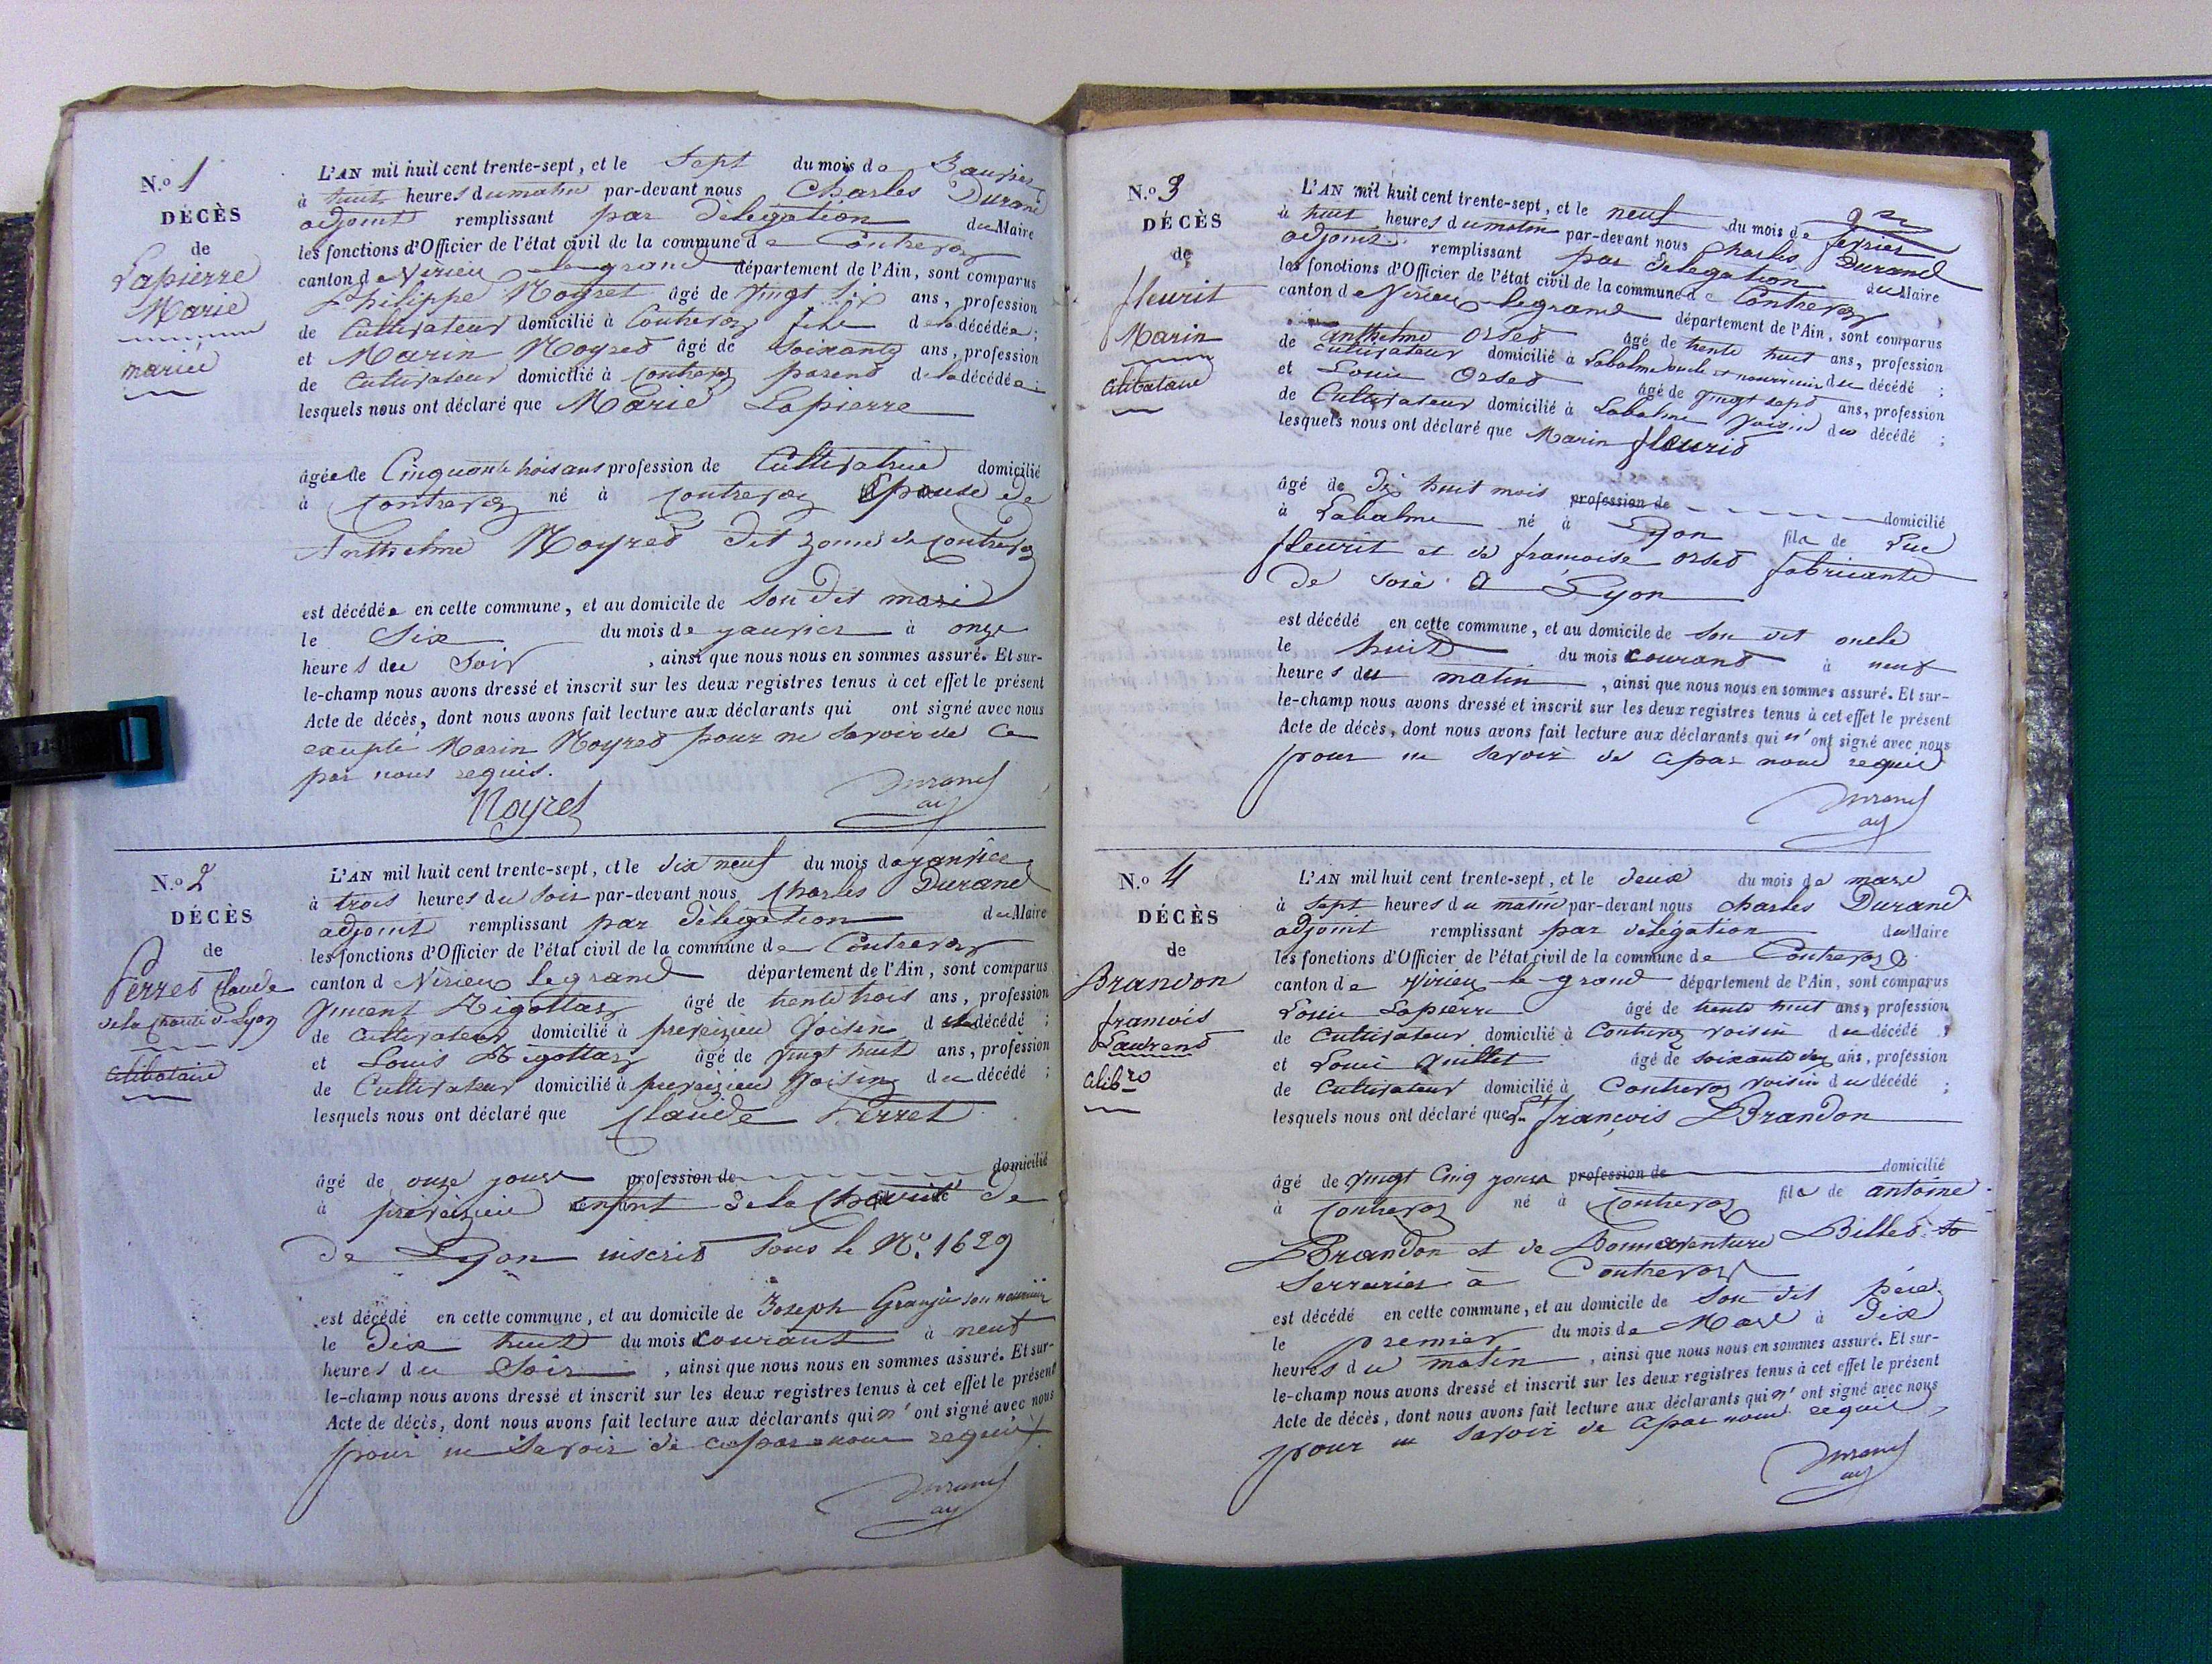 N.o 1
DÉCÈS
de
Lapierre
Marie
mariée
L'AN mil huit cent trente-sept, et le Sept du mois de Janvier
à huit heures du matin par-devant nous Charles Durand
adjoint remplissant par délégation du Maire
les fonctions d'Officier de l'état civil de la commune de Contrevoz
canton de Virieu le grand département de l'Ain, sont comparus
Philippe Noyret âgé de vingt six ans, profession
de Cultivateur domicilié à Contrevoz fils de la décédée;
et Marin Noyret âgé de soixante ans, profession
de Cultivateur domicilié à Contrevoz parent de la décédée;
lesquels nous ont déclaré que Marie Lapierre
âgée de Cinquante trois ans profession de Cultivatrice domicilié
à Contrevoz né à Contrevoz Epouse de
Anthelme Noyret dit de Contrevoz
est décédée en cette commune, et au domicile de son dit mari
le Six du mois de janvier à onze
heures du Soir, ainsi que nous nous en sommes assuré. Et sur-
le-champ nous avons dressé et inscrit sur les deux registres tenus à cet effet le présent
Acte de décès, dont nous avons fait lecture aux déclarants qui ont signé avec nous
excepté Marin Noyret pour ne savoir de ce
par nous requis.
Noyret Durand
adj
N.o 2
DÉCÈS
de
Perret Claude
de la charité de Lyon
célibataire
L'AN mil huit cent trente-sept, et le dix neuf du mois de janvier
à trois heures du soir par-devant nous Charles Durand
adjoint remplissant par délégation du Maire
les fonctions d'Officier de l'état civil de la commune de Contrevoz
canton d Virieu le grand département de l'Ain, sont comparus
Vincent Rigottaz âgé de trente trois ans, profession
de Cultivateur domicilié à preveizieu Voisin du décédé;
et Louis Rigottaz âgé de vingt huit ans, profession
de Cultivateur domicilié à preveizieu Voisin du décédé;
lesquels nous ont déclaré que Claude Perret
âgé de onze jours profession de domicilié
à preveizieu enfant de la Charité de
de Lyon inscrit sous le No. 1629
est décédé en cette commune, et au domicile de Joseph son nourricier
le Dix huit du mois courant à neuf
heures du Soir, ainsi que nous nous en sommes assuré. Et sur-
le-champ nous avons dressé et inscrit sur les deux registres tenus à cet effet le présent
Acte de décès, dont nous avons fait lecture aux déclarants qui n'ont signé avec nous
pour ne savoir de ce par nous requis
Durand
adj
N.o 3
DÉCÈS
de
fleurit
Marin
célibataire
L'AN mil huit cent trente-sept, et le neuf du mois de fevrier
à huit heures du matin par-devant nous Charles Durand
adjoint remplissant par délégation du Maire
les fonctions d'Officier de l'état civil de la commune de Contrevoz
canton de Virieu le grand département de l'Ain, sont comparus
anthelme Orset âgé de trente huit ans, profession
de cultivateur domicilié à Labalme oncle et nourricier du décédé;
et Louis Orset âgé de vingt sept ans, profession
de Cultivateur domicilié à Labalme Voisin du décédé;
lesquels nous ont déclaré que Marin fleurit
âgé de Dix huit mois profession de domicilié
à Labalme né à Lyon fils de Luc
fleurit et de francoise Orset fabricants
de soie à Lyon
est décédé en cette commune, et au domicile de son dit oncle
le huit du mois courant à neuf
heures du matin, ainsi que nous nous en sommes assuré. Et sur-
le-champ nous avons dressé et inscrit sur les deux registres tenus à cet effet le présent
Acte de décès, dont nous avons fait lecture aux déclarants qui n'ont signé avec nous
pour ne savoir de ce par nous requis
Durand
adj
N.o 4
DÉCÈS
de
Brandon
francois
Laurent
célibre
L'AN mil huit cent trente-sept, et le deux du mois de mars
à sept heures du matin par-devant nous charles Durand
adjoint remplissant par délégation du Maire
les fonctions d'Officier de l'état civil de la commune de Contrevoz
canton de Virieu le grand département de l'Ain, sont comparus
Louis Lapierre âgé de trente huit ans, profession
de Cultivateur domicilié à Contrevoz voisin du décédé;
et Louis Quillet âgé de soixante dix ans, profession
de Cultivateur domicilié à Contrevoz voisin du décédé;
lesquels nous ont déclaré que Lt françois Brandon
âgé de vingt Cinq jours profession de domicilié
à Contrevoz né à Contrevoz fils de antoine
Brandon et de Bonnaventure Billet
Serrurier à Contrevoz
est décédé en cette commune, et au domicile de son dit père
le premier du mois de Mars à Dix
heures du matin, ainsi que nous nous en sommes assuré. Et sur-
le-champ nous avons dressé et inscrit sur les deux registres tenus à cet effet le présent
Acte de décès, dont nous avons fait lecture aux déclarants qui n'ont signé avec nous
pour ne savoir de ce par nous requis
Durand
adj